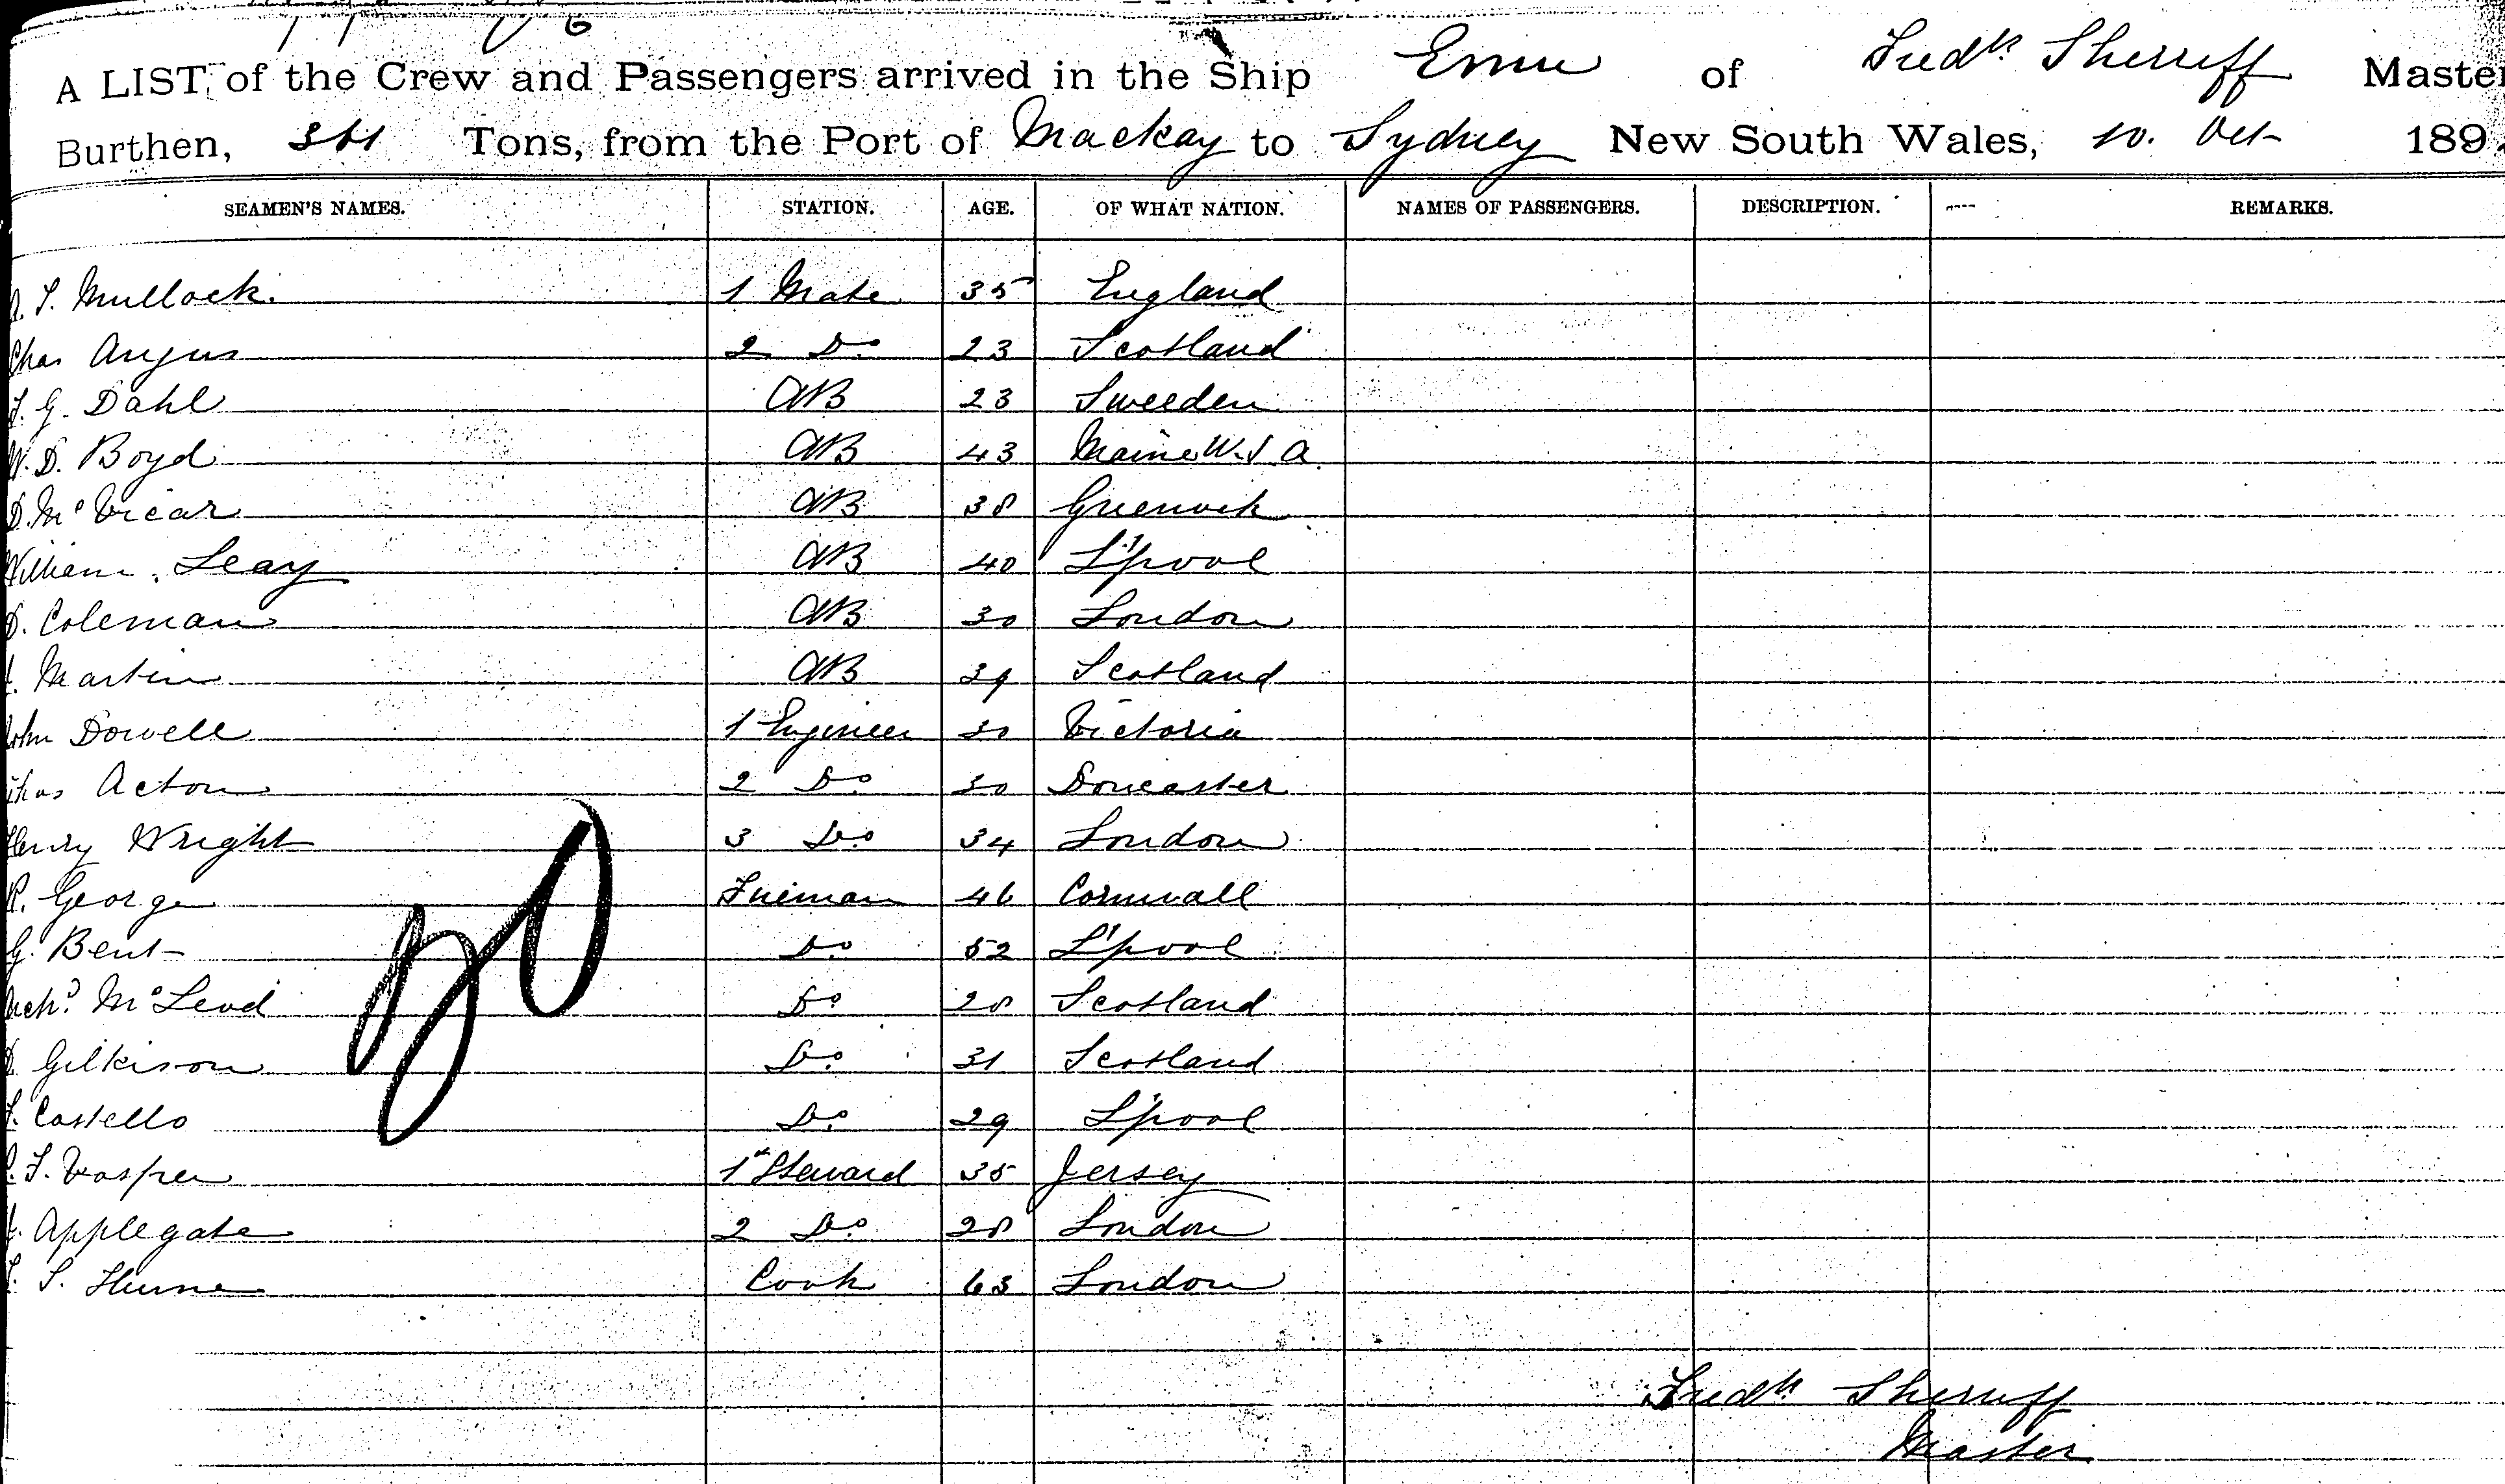 A LIST of the Crew and Passengers arrived in the Ship Emu of Fredk Sherriff Master
Burthen, Tons, from the Port of Mackay to Sydney New South Wales, 10. Oct 189
SEAMEN'S NAMES. STATION. AGE. OF WHAT NATION. NAMES OF PASSENGERS. DESCRIPTION. REMARKS.
S. Mullock. 1 Mate 35 England
Chas Angus 2 Do 23 Scotland
G. Dahl AB 23 Sweeden
W. D. Boyd AB 43 Maine U.S.A.
D. McVicar AB 38 Greenock
William Leay AB 40 L'pool
D. Coleman AB 30 London
Martin AB 39 Scotland
John Dowell 1 Engineer 30 Victoria
Acton 2 Do 30 Doncaster
Henry Wright 3 Do 34 London
R. George Fireman 46 Cornwall
G. Bent Do 52 L'pool
Archd McLeod Do 28 Scotland
D Gilkison Do 31 Scotland
Costello Do 29 L'pool
F. Vosper 1st Steward 35 Jersey
Applegate 2 Do 28 London
S. Hume Cook 63 London
Fredk Sherriff
Master